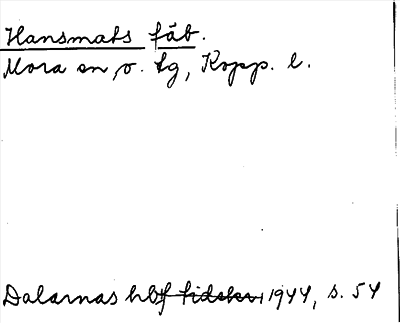 Hansmats fäb.
Mora sn, o. tg, Kopp. l.
Dalarnas hbf tidskr, 1944, s. 54